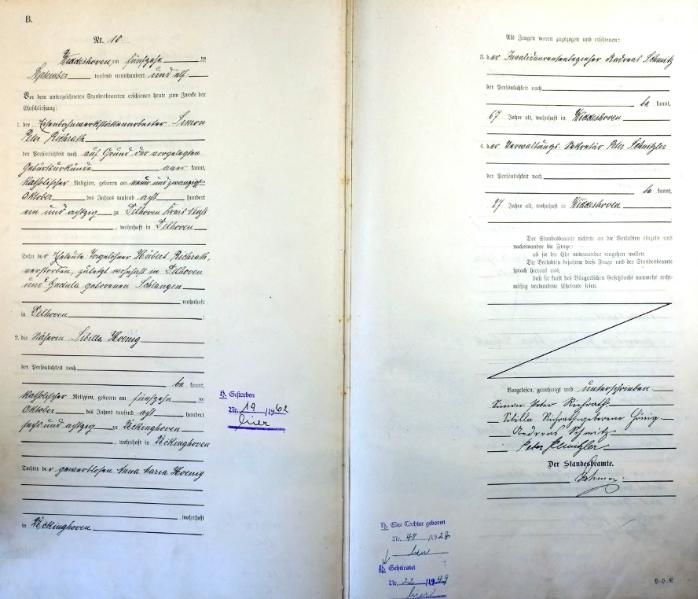 B.
Nr. 10
Wevelinghoven, am fünfzehn ten
September tausend neunhundert und elf
Vor dem unterzeichneten Standesbeamten erschienen heute zum Zwecke der
Eheschließung:
1. der Eisenbahnwerkstättenarbeiter Simon
Peter Richrath
der Persönlichkeit nach auf Grund der vorgelegten
Geburtsurkunde aner kannt,
katholischer Religion, geboren am neun und zwanzigsten
Oktober des Jahres tausend acht hundert
ein und achtzig zu Delhoven
, wohnhaft in Delhoven
Sohn der Eheleute Hubert Richrath,
verstorben, zuletzt wohnhaft in Delhoven
und geborenen Schlangen
wohnhaft
in Delhoven
2. die Näherin Sibilla Hoenig
der Persönlichkeit nach
be kannt,
katholischer Religion, geboren am fünfzehn ten
Oktober des Jahres tausend acht hundert
und achtzig zu
, wohnhaft in
Tochter der gewerblosen Anna Maria Hoenig
wohnhaft
in
H. Gestorben
Nr. 19 /1962
hier
Als Zeugen waren zugezogen und erschienen:
3. der Invalidenrentenempfänger Andreas Schmitz
der Persönlichkeit nach
be kannt,
67 Jahre alt, wohnhaft in
4. der Verwaltungs Sekretär Peter
der Persönlichkeit nach
be kannt,
27 Jahre alt, wohnhaft in
Der Standesbeamte richtete an die Verlobten einzeln und
nacheinander die Frage:
ob sie die Ehe miteinander eingehen wollen.
Die Verlobten bejahten diese Frage und der Standesbeamte
sprach hierauf aus,
daß sie kraft des Bürgerlichen Gesetzbuchs nunmehr recht-
mäßig verbundene Eheleute seien.
Vorgelesen, genehmigt und unterschrieben
Simon Peter Richrath
Sibilla Richrath geborene Hönig
Andreas Schmitz
Peter
Der Standesbeamte.
H. Eine Tochter geboren
Nr. 48 /1927
hier
H. Geheiratet
Nr. 22 /1949
hier